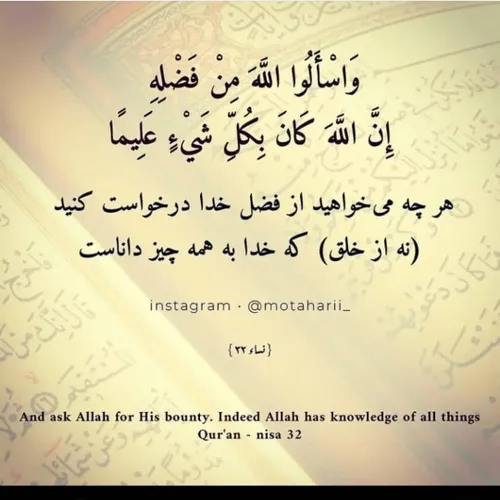 وَاسْأَلُوا اللَّهَ مِنْ فَضْلِهِ
إِنَّ اللَّهَ كَانَ بِكُلِّ شَيْءٍ عَلِيمًا
هر چه می‌خواهید از فضل خدا درخواست کنید
(نه از خلق) که خدا به همه چیز داناست
instagram • @motaharii_
{نساء ۳۲}
And ask Allah for His bounty. Indeed Allah has knowledge of all things
Qur'an - nisa 32